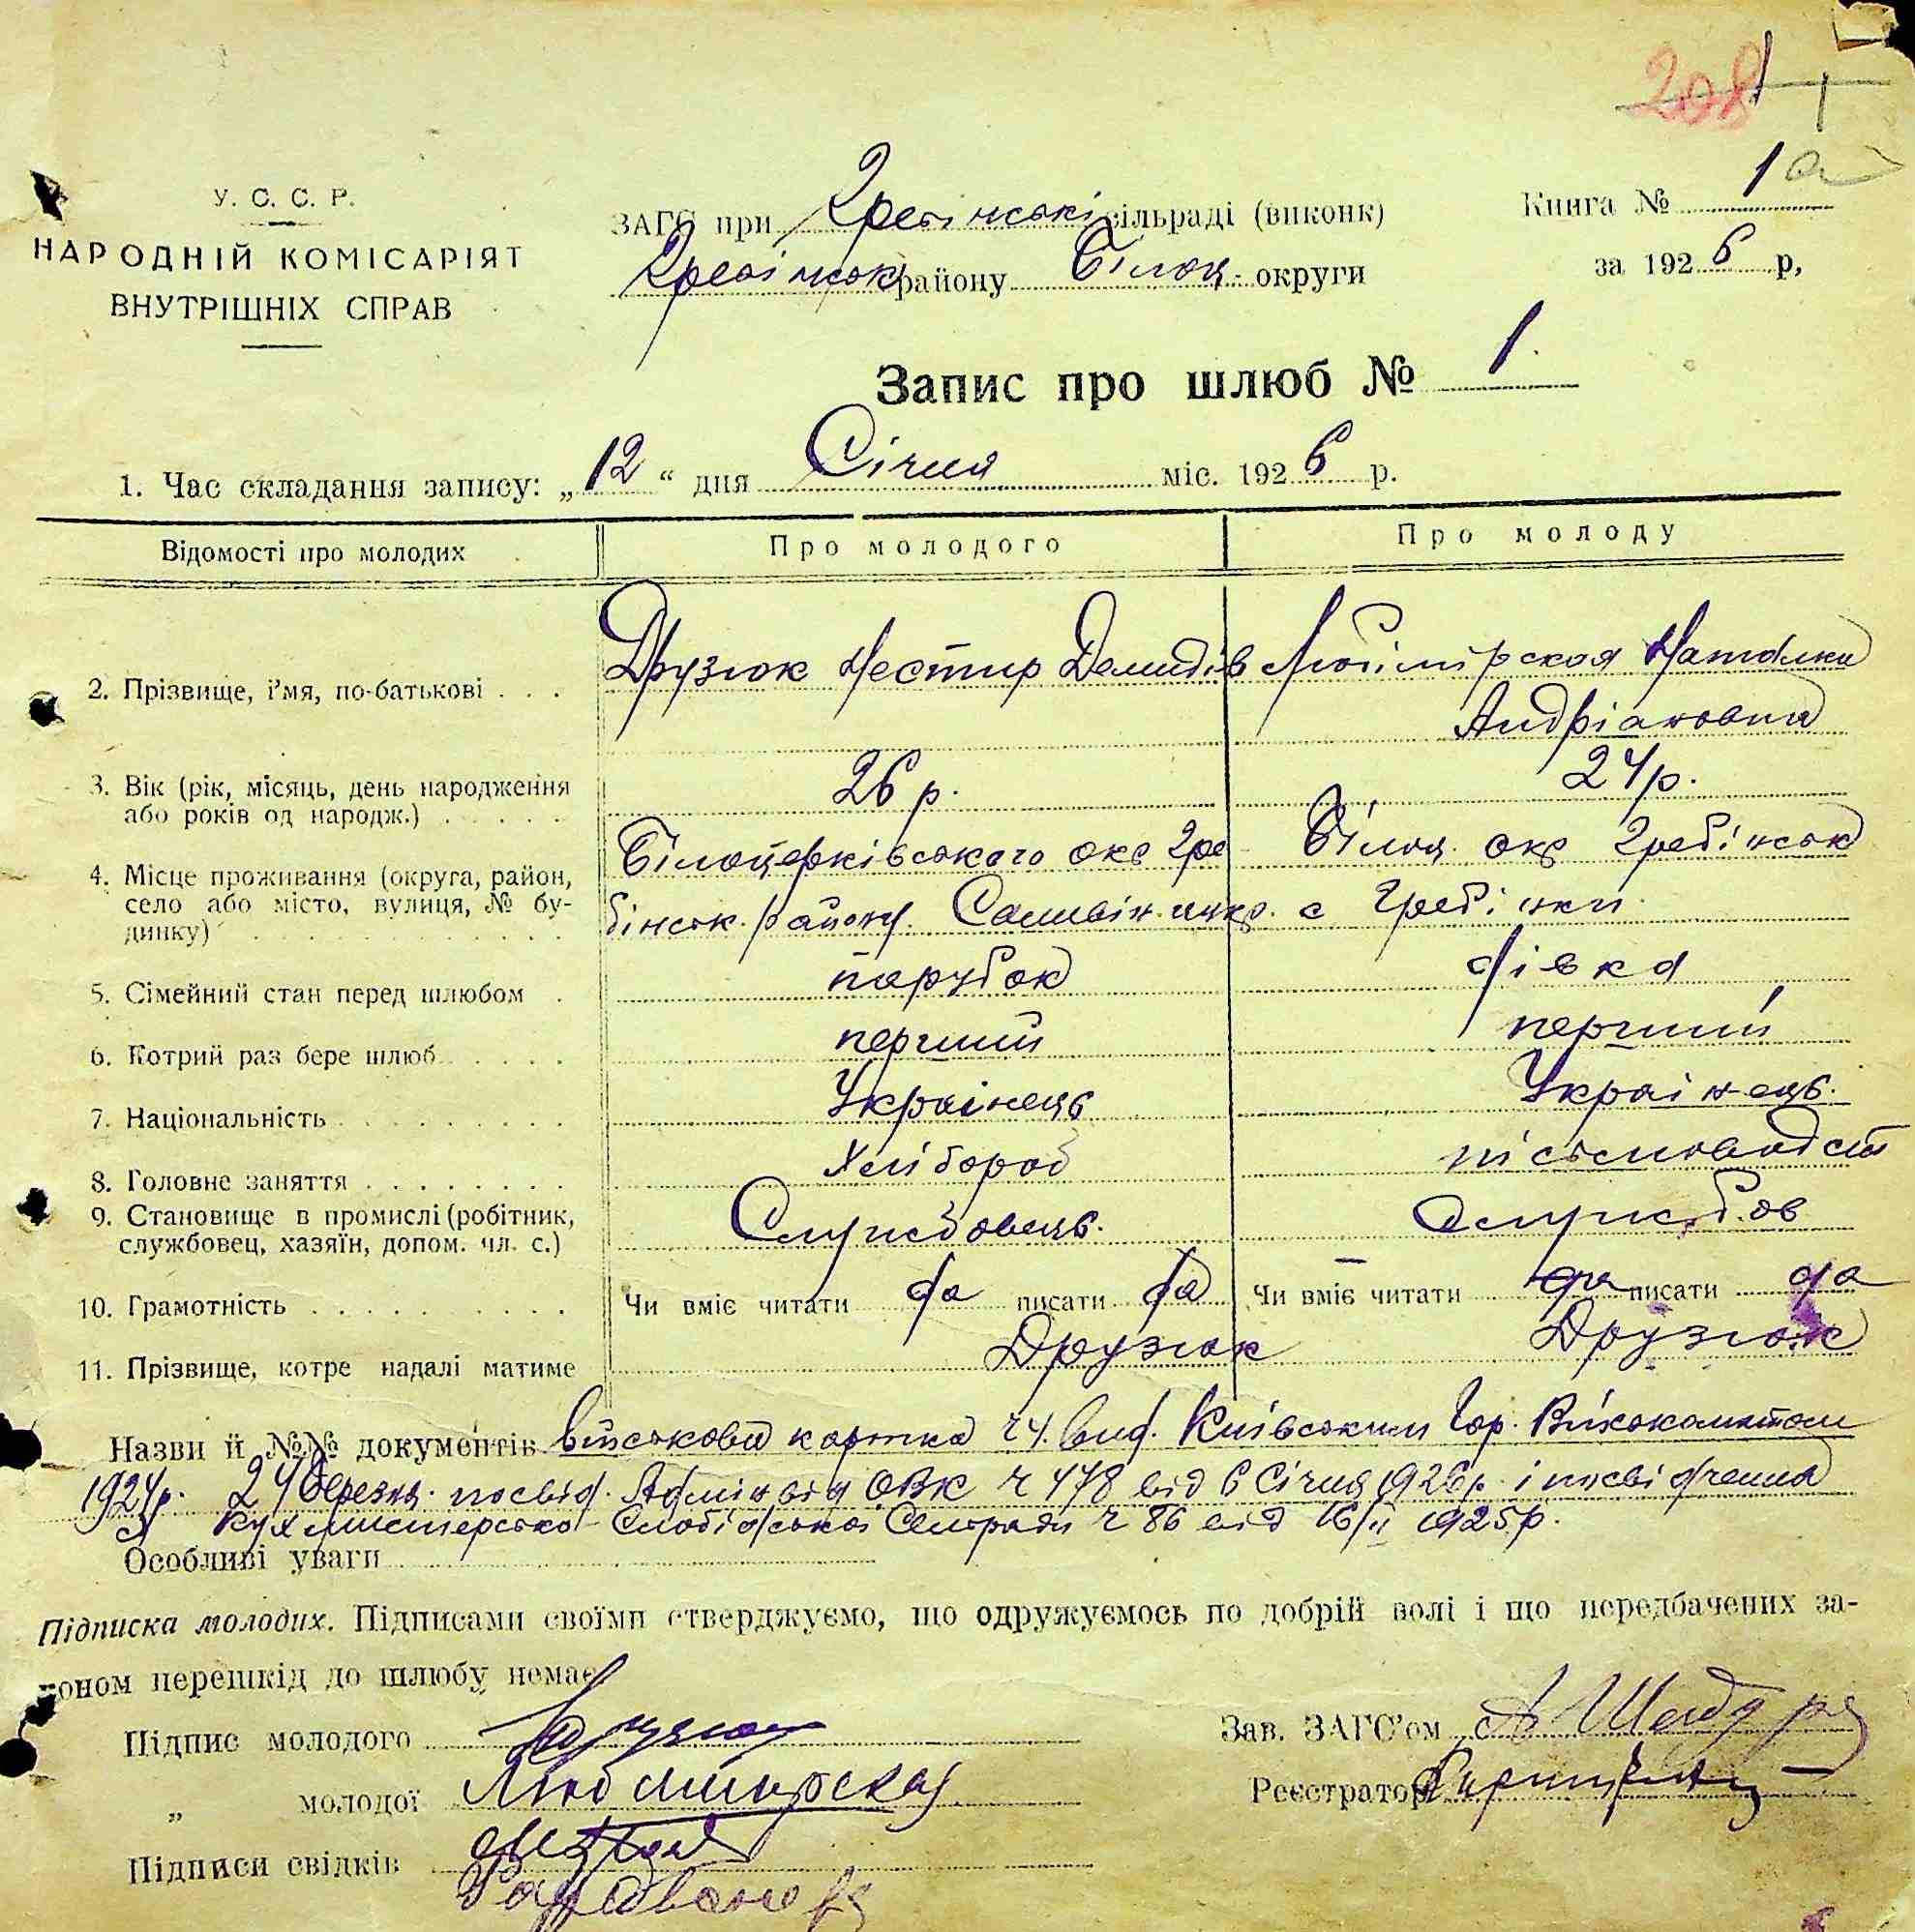 208
У. С. С. Р.
НАРОДНІЙ КОМІСАРІЯТ
ВНУТРІШНІХ СПРАВ
ЗАГС при Гребінські сільраді (виконк)
Гребінськ району Білоц. округи
Книга № 1а
за 1926 р,
Запис про шлюб № 1.
1. Час складання запису: „12“ дня Січня міс. 1926 р.
Відомості про молодих Про молодого Про молоду
2. Прізвище, і'мя, по-батькові . . . Друзюк Нестир Демидів Любімірская Наталка
Андріановна
3. Вік (рік, місяць, день народження
або років од народж.) . . . . . 26 р. 24р.
4. Місце проживання (округа, район,
село або місто, вулиця, № бу-
динку) . . . . . . . . . . .
Білоцерківського окр Гре- Білоц окр Гребінськ
бінськ. району. с Гребінки
5. Сімейний стан перед шлюбом . парубок дівка
6. Котрий раз бере шлюб . . . . . перший перший
7. Національність . . . . . . . . . Украінець Украінець.
8. Головне заняття . . . . . . . . Хлібороб пісьмоводст
9. Становище в промислі (робітник,
службовец, хазяїн, допом. чл. с.) Службовець. Службов
10. Грамотність . . . . . . . . . Чи вміє читати да писати да Чи вміє читати да писати да
11. Прізвище, котре надалі матиме Друзюк Друзюк
Назви й №№ документів військова картка ч4. вид. Киівським Гор. Війскоматом
1924р. 24 Березня. посвід. Адмінвід ОВК ч 478 від 6 Січня 1926р. і посвідчення
Кухмистерсько-Слобідської Сельради ч 86 від 16/II 1925р.
Особливі уваги
Підписка молодих. Підписами своїми стверджуємо, що одружуємось по добрій волі і що передбачених за-
коном перешкід до шлюбу немає
Підпис молодого Друзюк
„ молодої Любимирская
Підписи свідків
Зав. ЗАГС'ом
Реєстратор